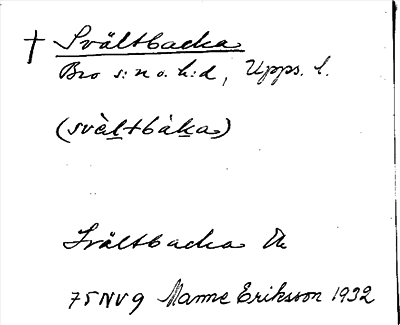 † Svältbacka
Bro s:n o. h:d, Upps. l.
(svæ̀ltbàka)
Svältbacka
75NV9 Manne Eriksson 1932